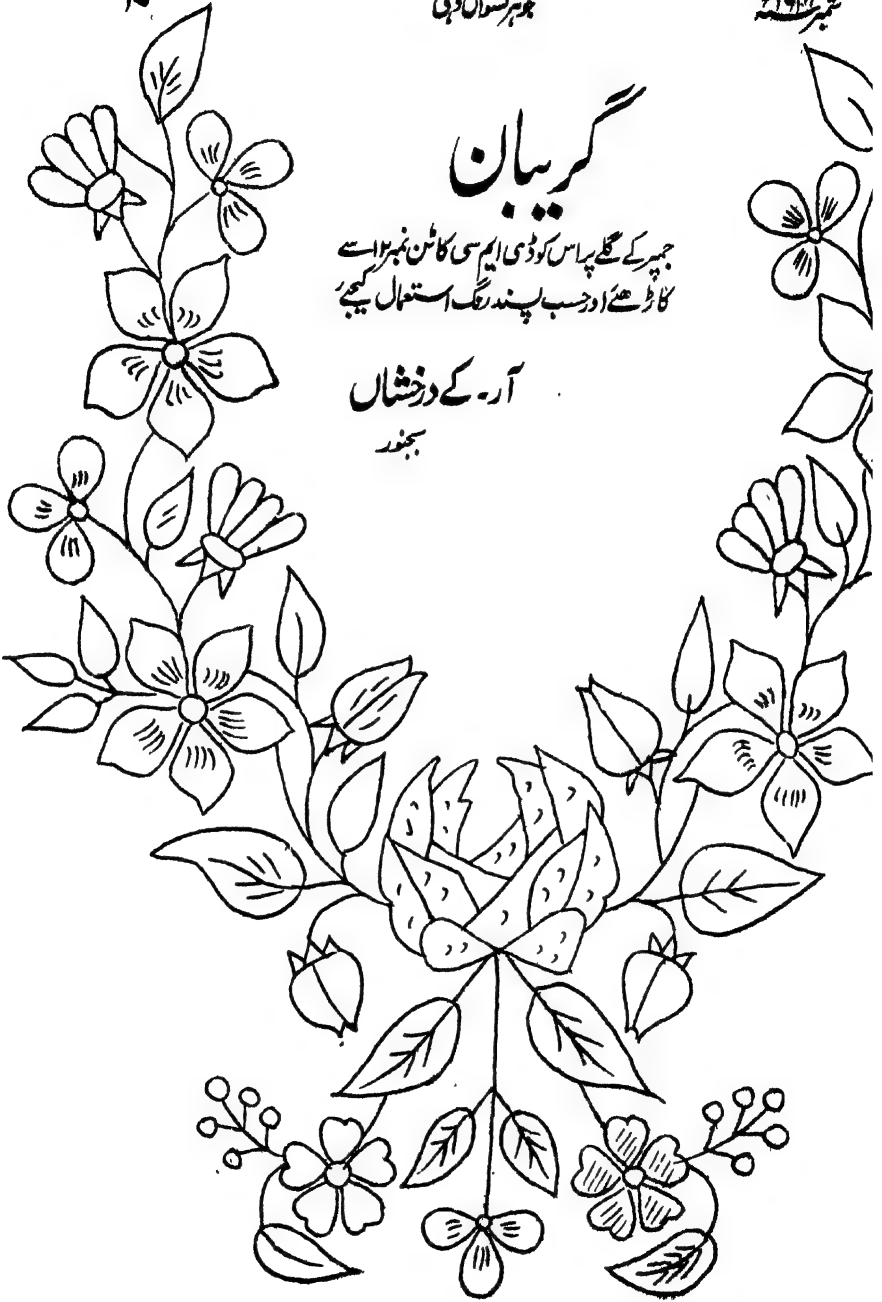 جوہر نسواں دہلی
گریبان
جمپر کے گلے پر اس کو ڈی ایم سی کاٹن نمبر ۱۲ سے
کاڑھئے اور حسب پسند رنگ استعمال کیجئے
آر۔ کے درخشاں
بجنور